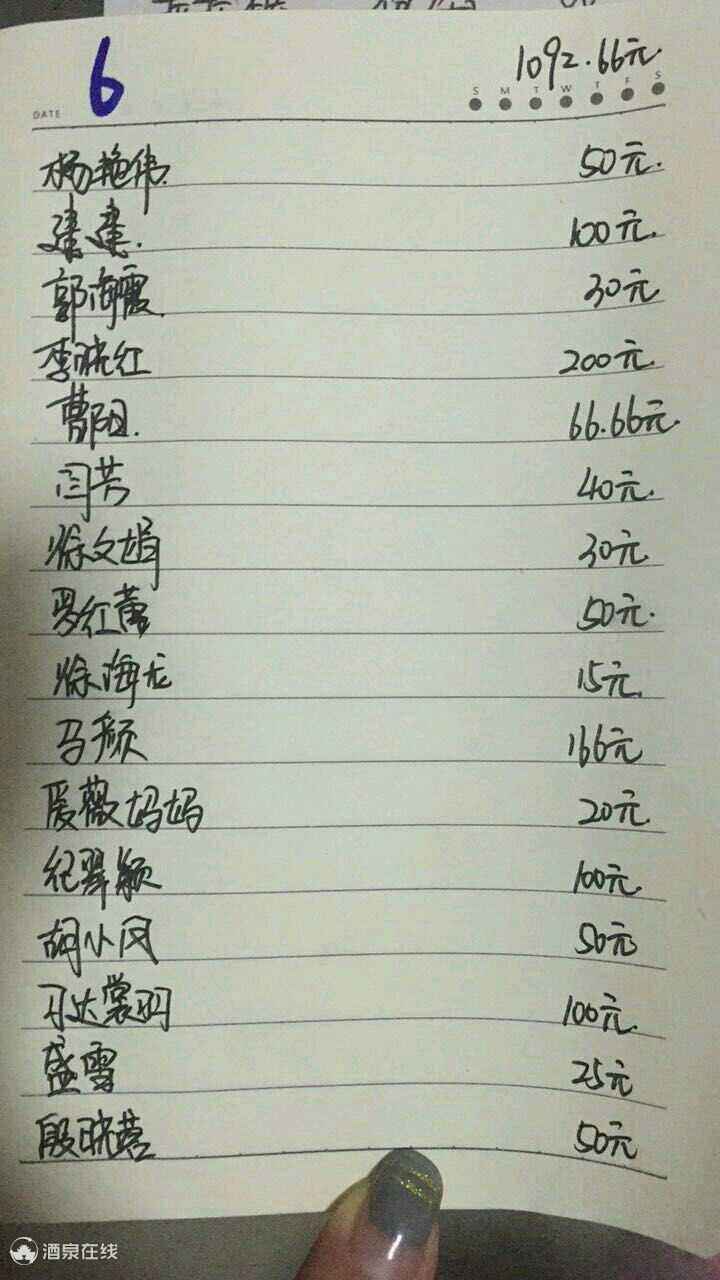 6
1092.66元
DATE
S M T W T F S
杨艳伟. 50元.
建建. 100元.
郭海霞. 30元
李晓红 200元.
曹阳. 66.66元.
闫芳 40元.
徐文娟 30元
罗红蕾 50元.
徐海龙 15元.
马频 166元
爱薇妈妈 20元
纪翠颖 100元
胡小凤 50元
马达裳羽 100元
盛雪 25元
殷晓蓉 50元
酒泉在线